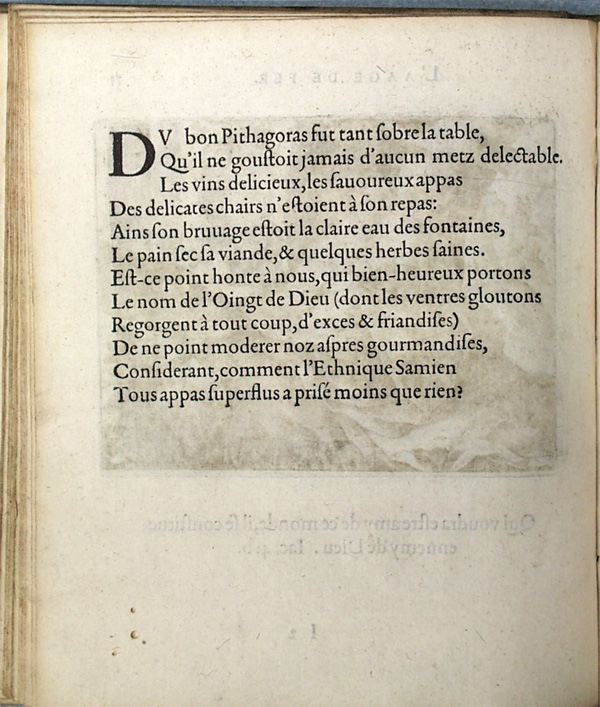 DV bon Pithagoras fut tant ſobre la table,
Qu'il ne gouſtoit jamais d'aucun metz delectable.
Les vins delicieux, les ſauoureux appas
Des delicates chairs n'eſtoient à ſon repas:
Ains ſon bruuage eſtoit la claire eau des fontaines,
Le pain ſec ſa viande, & quelques herbes ſaines.
Eſt-ce point honte à nous, qui bien-heureux portons
Le nom de l'Oingt de Dieu (dont les ventres gloutons
Regorgent à tout coup, d'exces & friandiſes)
De ne point moderer noz aſpres gourmandiſes,
Conſiderant, comment l'Ethnique Samien
Tous appas ſuperflus a priſé moins que rien?